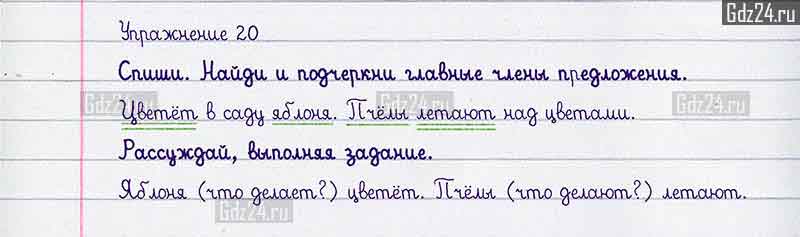 Gdz24.ru
Упражнение 20
Спиши. Найди и подчеркни главные члены предложения.
Gdz24.ru Gdz24.ru Gdz24.ru
Цветёт в саду яблоня. Пчёлы летают над цветами.
Рассуждай, выполняя задание.
Яблоня (что делает?) цветёт. Пчёлы (что делают?) летают.
Gdz24.ru